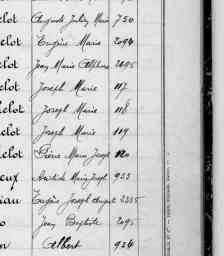 elot Auguste Julien Marie 750
elot Eugène Marie 2094
elot Jean Marie 2095
elot Joseph Marie 117
elot Joseph Marie 118
elot Joseph Marie 119
elot Pierre Marie Joseph 120
eux Aristide Marie Joseph 933
iau Eugène Joseph August 2335
o Jean Baptiste 2095
n Albert 924